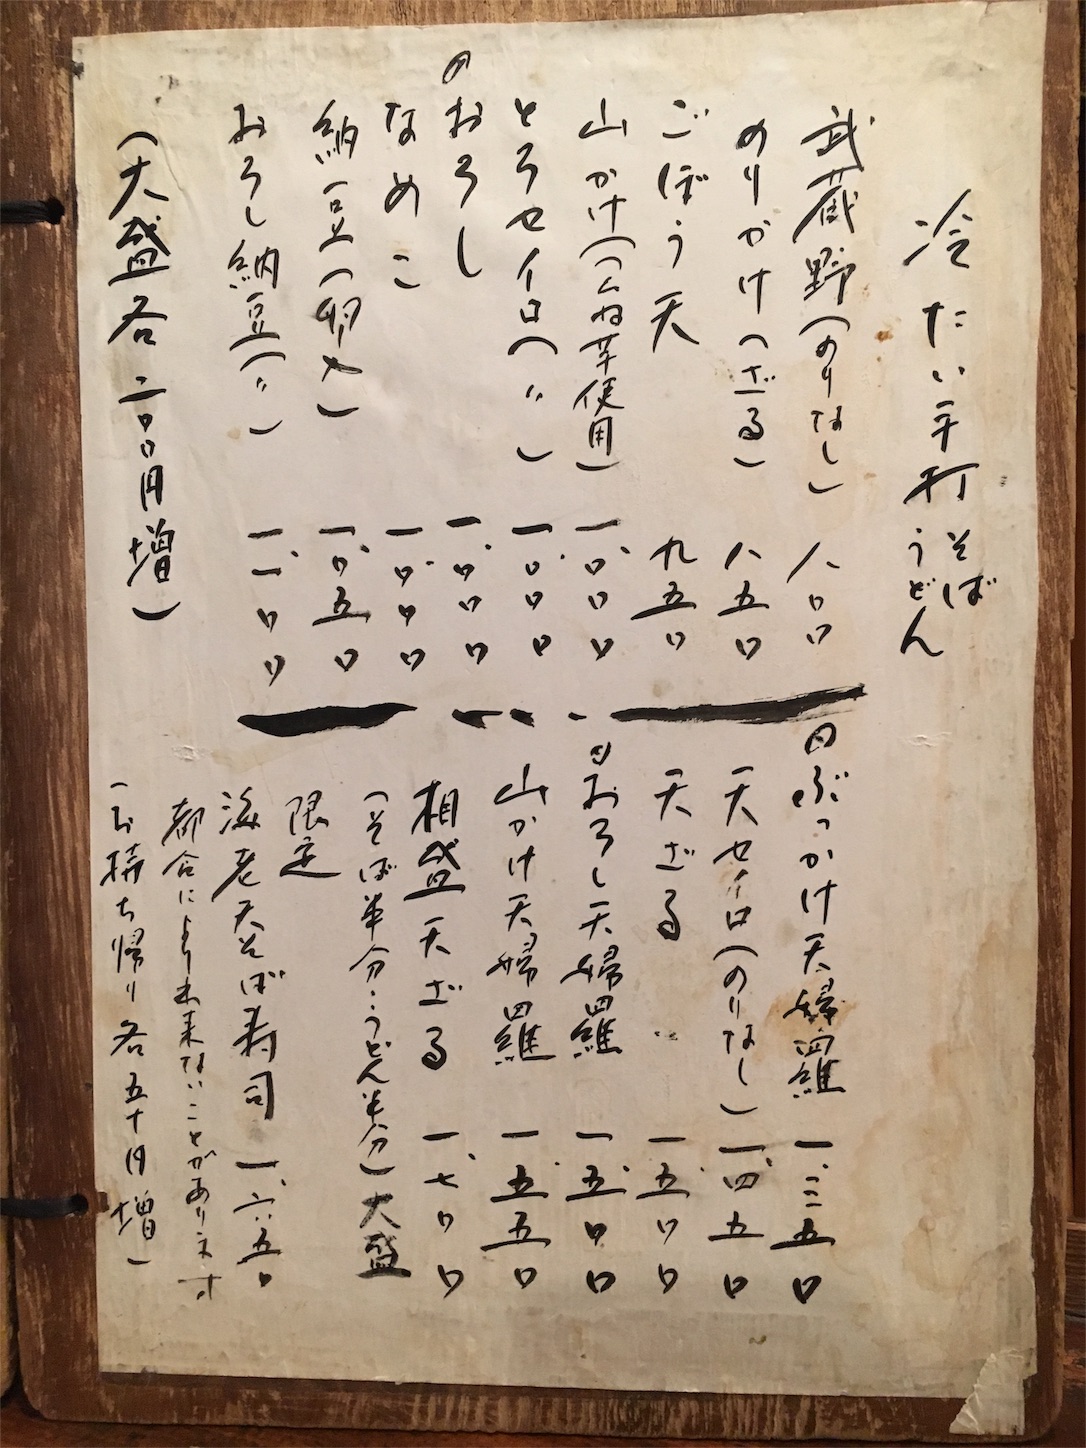 冷たい手打そば
うどん
武蔵野(のりなし) 八〇〇
のりかけ(ざる) 八五〇
ごぼう天 九五〇
山かけ(つくね芋使用) 一、〇〇〇
とろセイロ(〃) 一、〇〇〇
おろし 一、〇〇〇
なめこ 一、〇〇〇
納豆(卵付) 一、〇五〇
おろし納豆(〃) 一、一〇〇
(大盛各二〇〇円増)
ぶっかけ天婦羅 一、三五〇
天セイロ(のりなし) 一、四五〇
天ざる 一、五〇〇
おろし天婦羅 一、五〇〇
山かけ天婦羅 一、五五〇
相盛天ざる 一、七〇〇
(そば半分・うどん半分)大盛
限定
海老天そば寿司 一、六五〇
都合により出来ないことがあります
(お持ち帰り各五十円増)